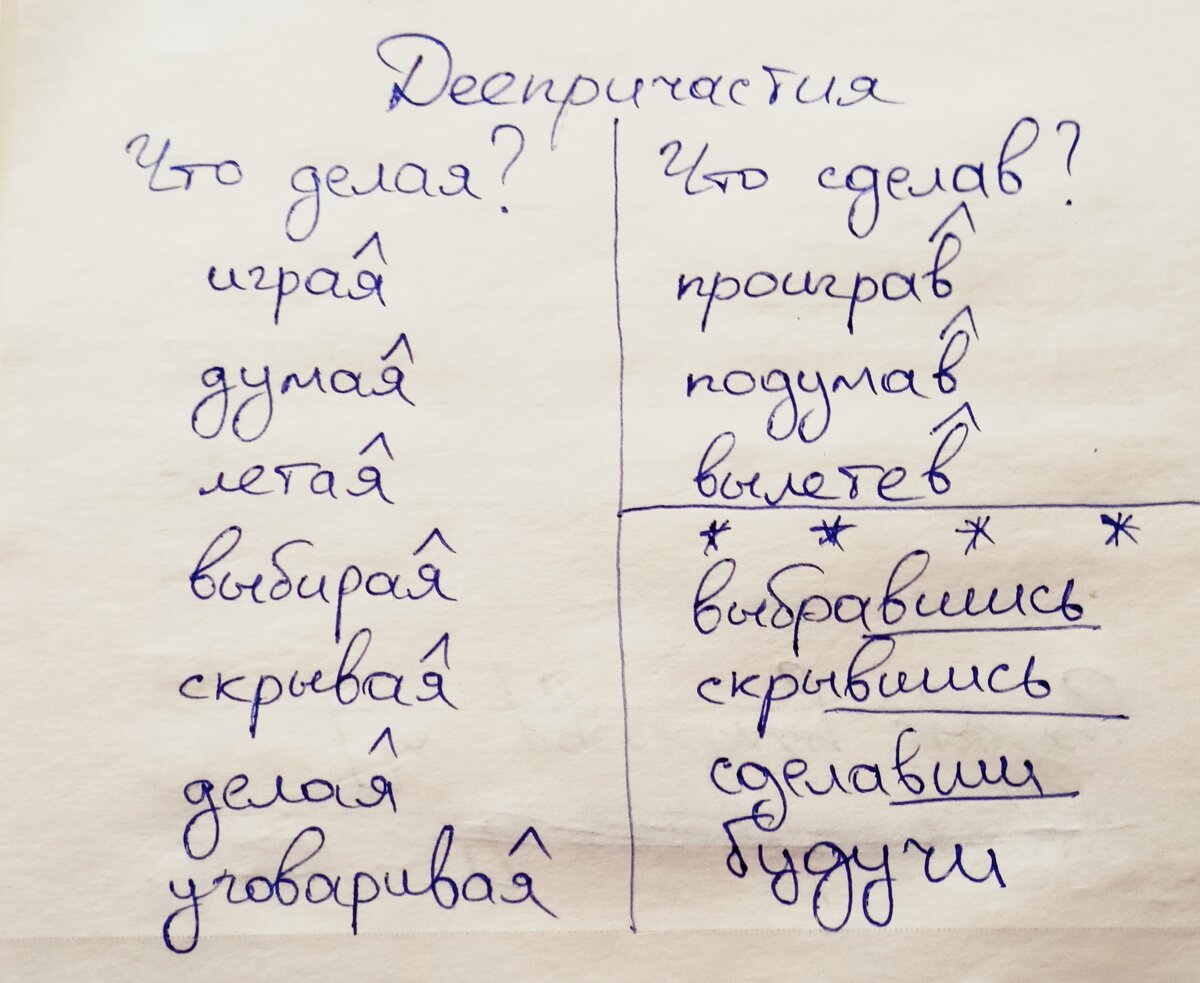 Деепричастия
Что делая?
играя
думая
летая
выбирая
скрывая
делая
уговаривая
Что сделав?
проиграв
подумав
вылетев
* * * *
выбравшись
скрывшись
сделавши
будучи